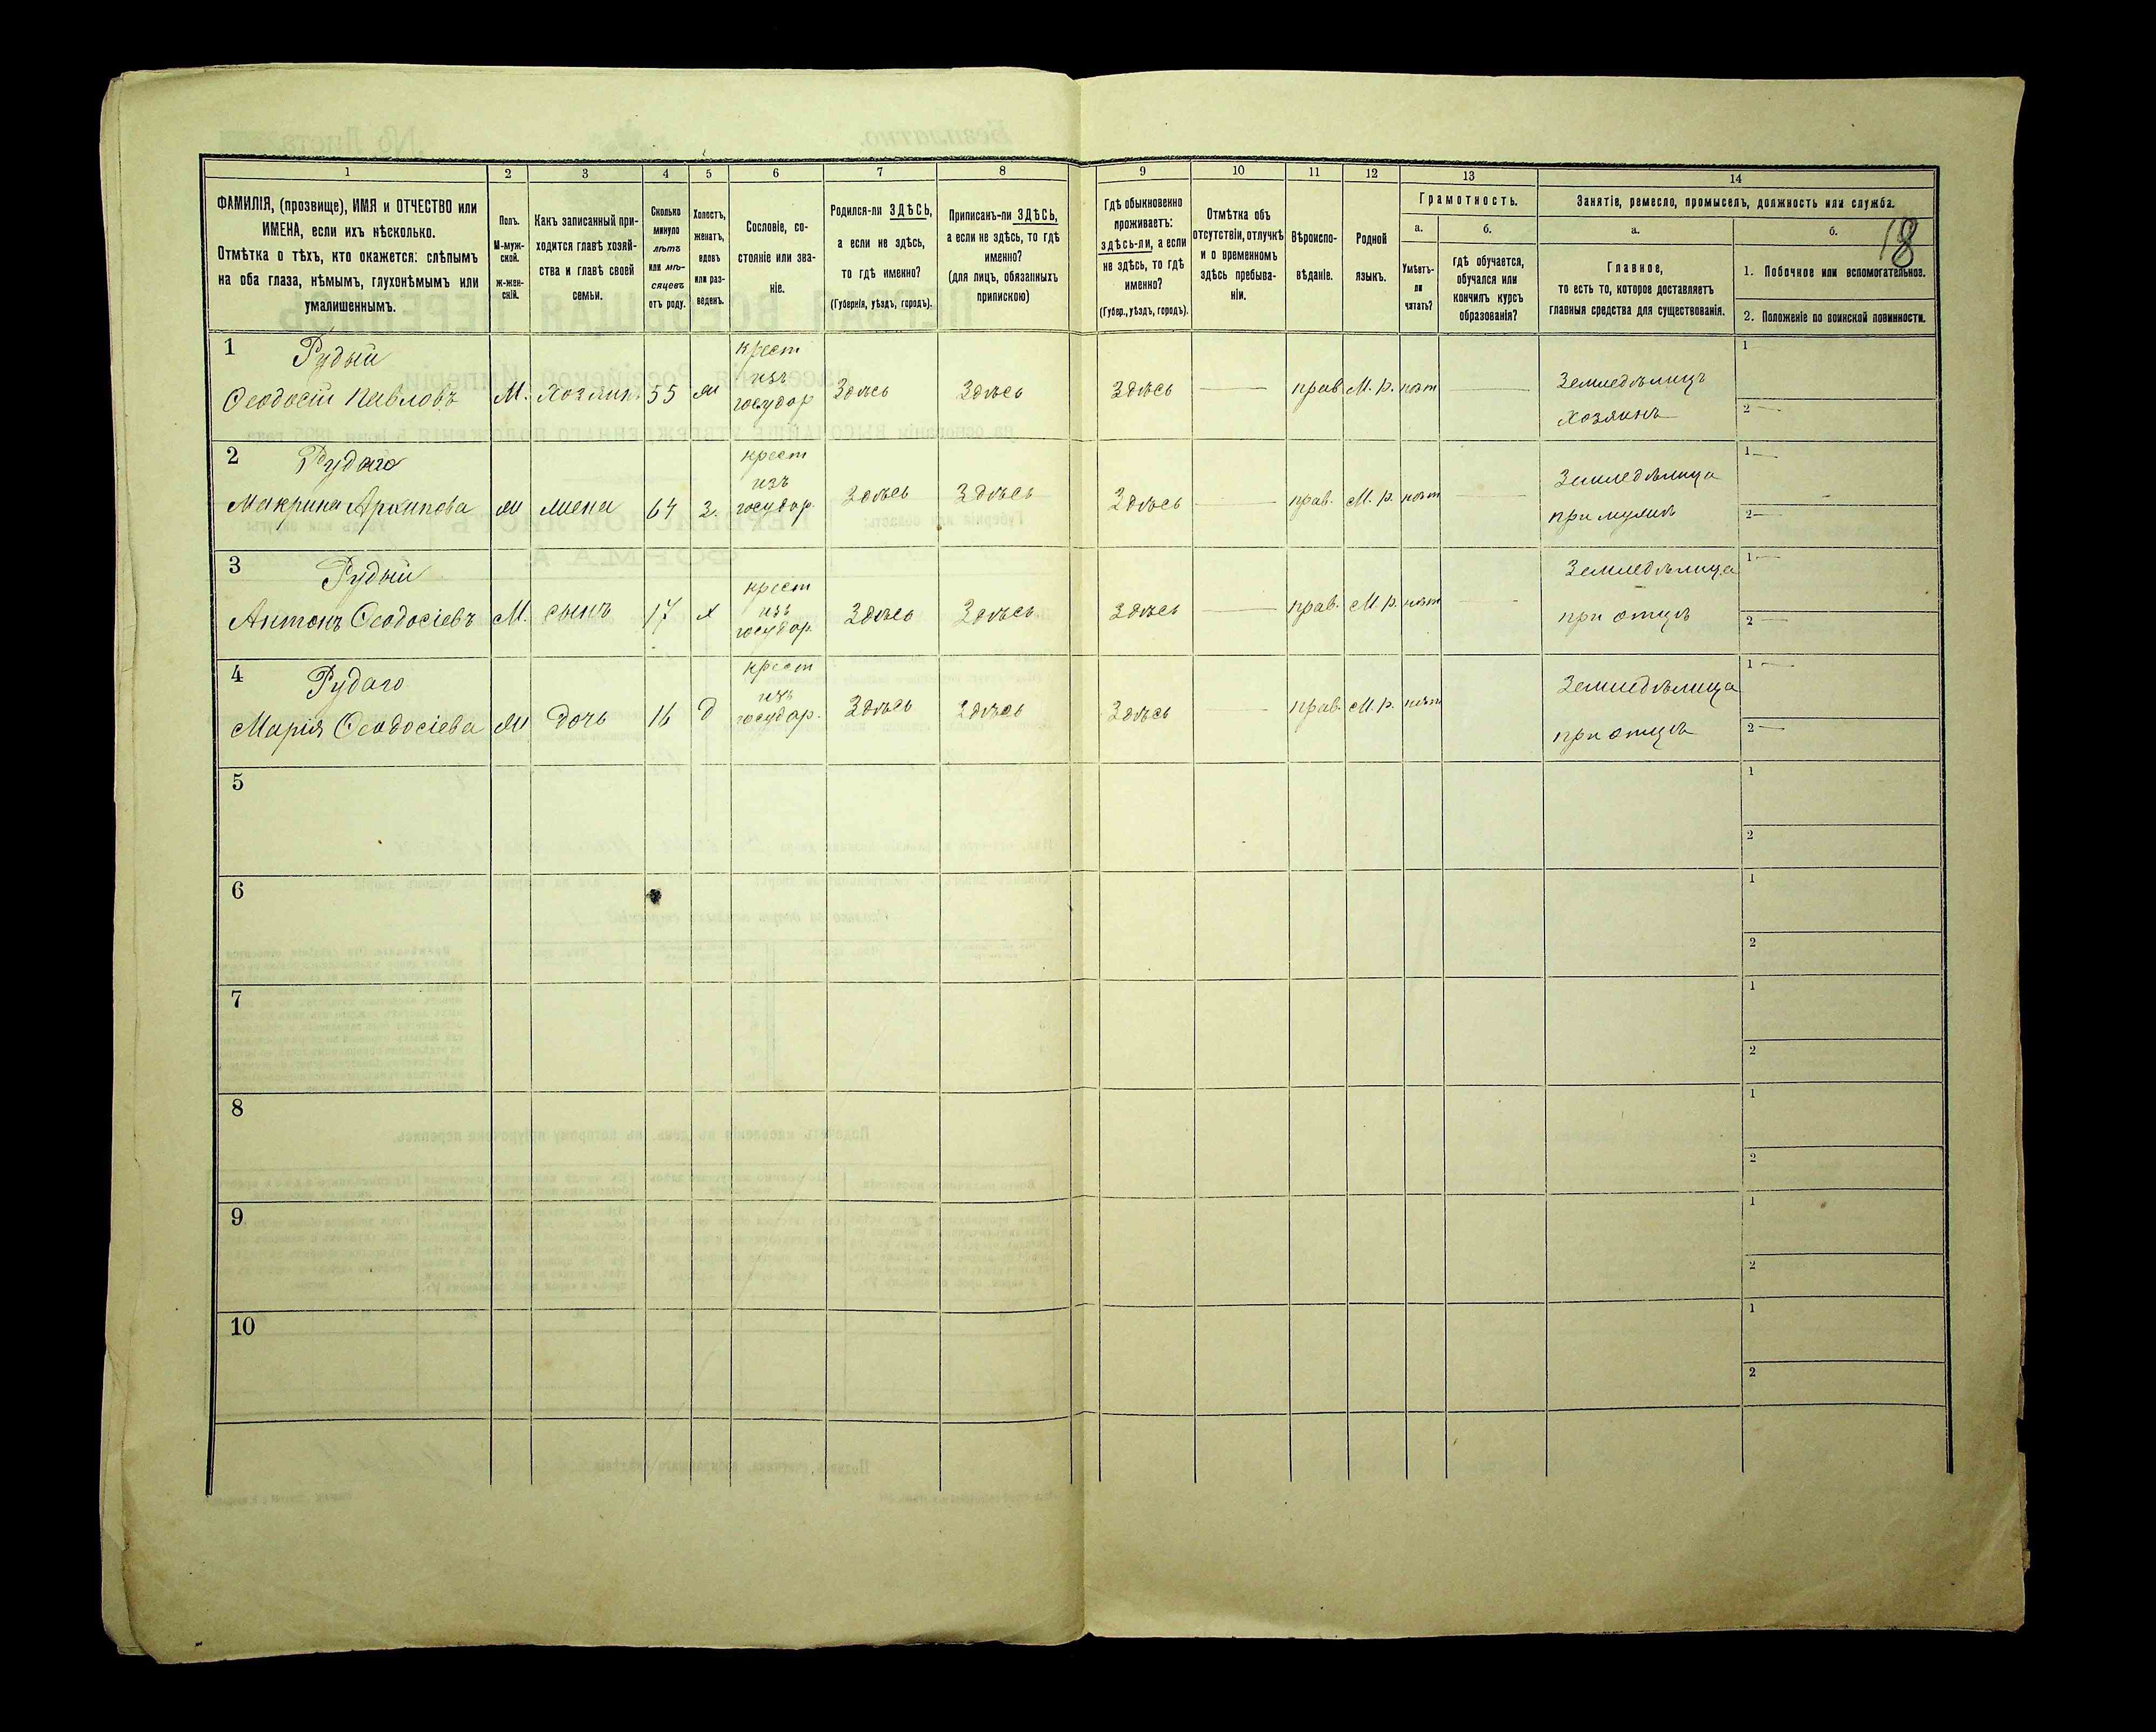 1 2 3 4 5 6 7 8 9 10 11 12 13 14
ФАМИЛІЯ, (прозвище), ИМЯ и ОТЧЕСТВО или
ИМЕНА, если ихъ нѣсколько.
Отмѣтка о тѣхъ, кто окажется: слѣпымъ
на оба глаза, нѣмымъ, глухонѣмымъ или
умалишеннымъ.
Полъ.
М-муж-
ской.
ж-жен-
скій.
Какъ записанный при-
ходится главѣ хозяй-
ства и главѣ своей
семьи.
Сколько
минуло
лѣтъ
или мѣ-
сяцевъ
отъ роду.
Холостъ,
женатъ,
вдовъ
или раз-
веденъ.
Сословіе, со-
стояніе или зва-
ніе.
Родился-ли ЗДѢСЬ,
а если не здѣсь,
то гдѣ именно?
(Губернія, уѣздъ, городъ).
Приписанъ-ли ЗДѢСЬ,
а если не здѣсь, то гдѣ
именно?
(для лицъ, обязанныхъ
припискою)
Гдѣ обыкновенно
проживаетъ:
здѣсь-ли, а если
не здѣсь, то гдѣ
именно?
(Губер., уѣздъ, городъ).
Отмѣтка объ
отсутствіи, отлучкѣ
и о временномъ
здѣсь пребыва-
ніи.
Вѣроиспо-
вѣданіе.
Родной
языкъ.
Грамотность.
а.
Умѣетъ-
ли
читать?
б.
гдѣ обучается,
обучался или
кончилъ курсъ
образованія?
Занятіе, ремесло, промыселъ, должность или служба.
а.
Главное,
то есть то, которое доставляетъ
главныя средства для существованія.
б.
18
1. Побочное или вспомогательное.
2. Положеніе по воинской повинности.
1 Рудый крест 1
изъ
Ѳеодосій Павловъ М. хозяин. 55 ж государ здѣсь здѣсь здѣсь прав М. р. нѣт Земледѣлецъ
хозяинъ 2
2 Рудаго крест 1
изъ
Макрина Архипова ж жена 64 з. государ. здѣсь здѣсь здѣсь прав. М. р. нѣт Земледѣлица
при мужѣ 2
3 Рудый крест 1
изъ
Антонъ Ѳеодосіевъ М. сынъ 17 х государ. здѣсь здѣсь здѣсь прав. М. р. нѣт Земледѣлица
при отцѣ 2
4 Рудаго крест 1
изъ
Марія Ѳеодосіева ж дочь 16 д государ. здѣсь здѣсь здѣсь прав. М. р. нѣт Земледѣлица
при отцѣ 2
5 1
2
6 1
2
7 1
2
8 1
2
9 1
2
10 1
2